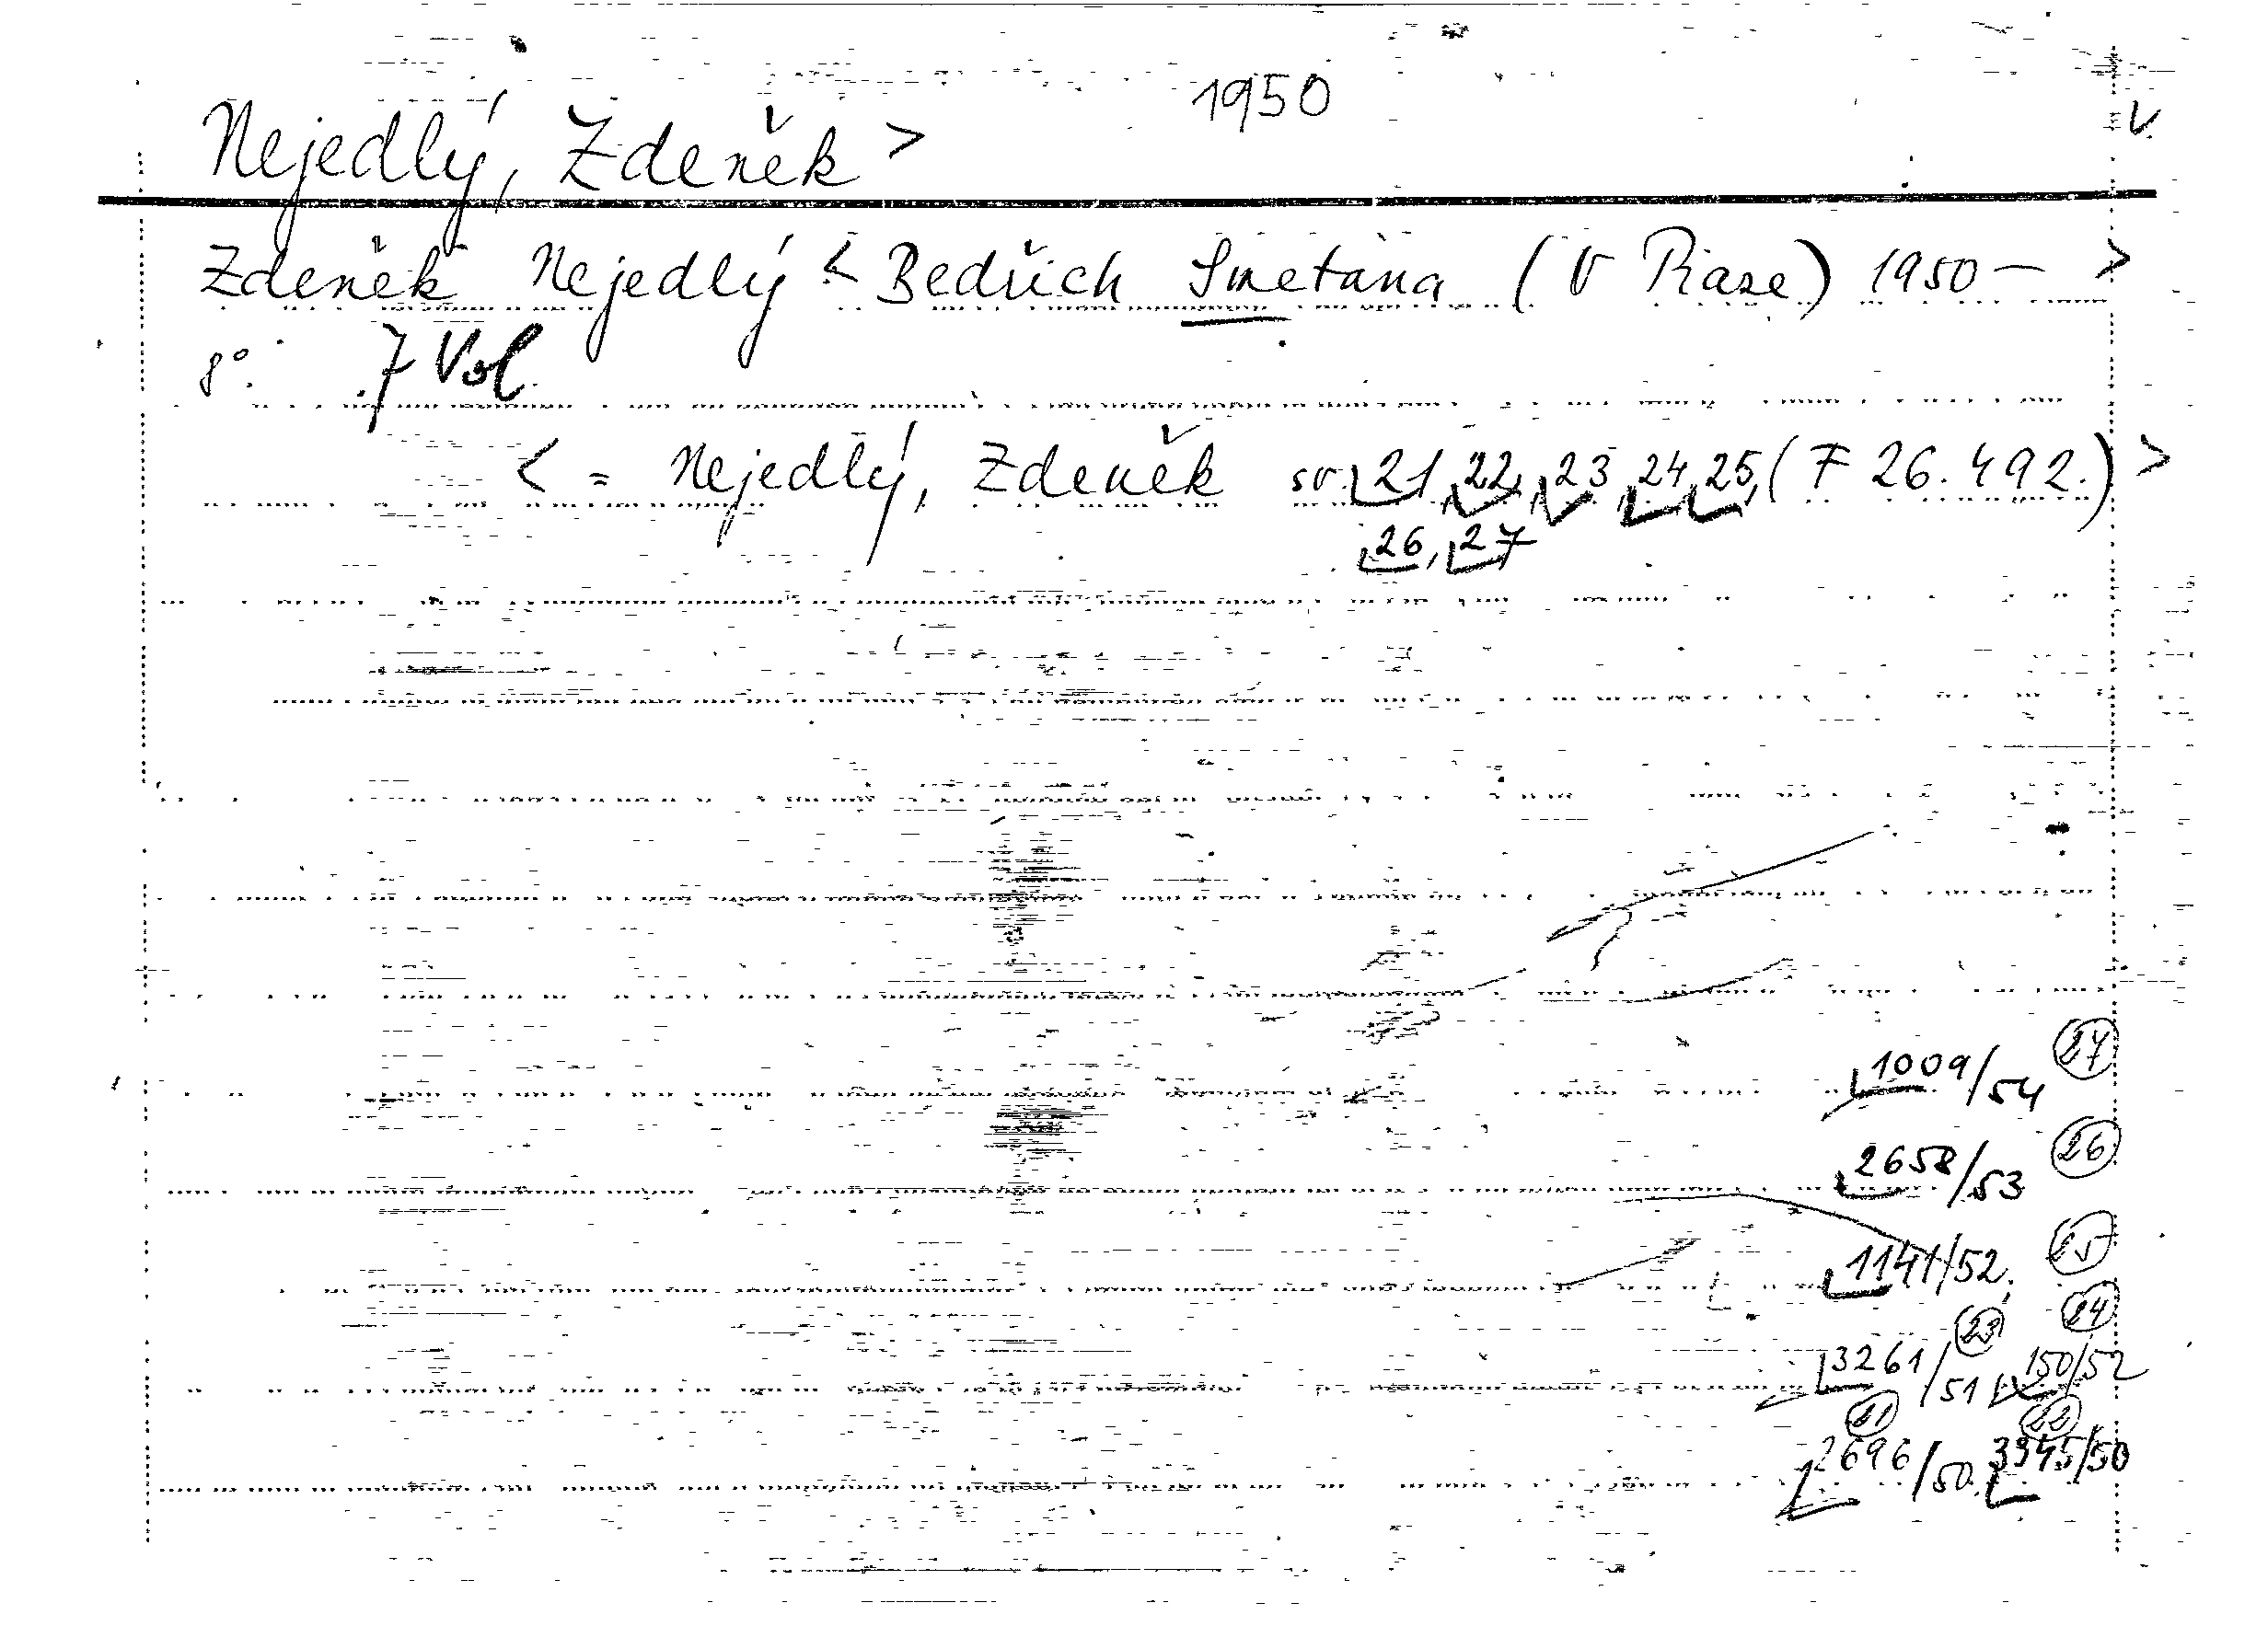 1950
V
Nejedlý, Zdeněk >
Zdeněk Nejedlý < Bedřich Smetana (V Praze) 1950 — >
8°. 7 Vol.
< = Nejedlý, Zdeněk sv. 21, 22, 23, 24, 25, (F 26.492.) >
26, 27
1009/54 27
2658/53 26
1141/52. 25
23 24
3261/51 150/52
21 22
2696/50. 3345/50